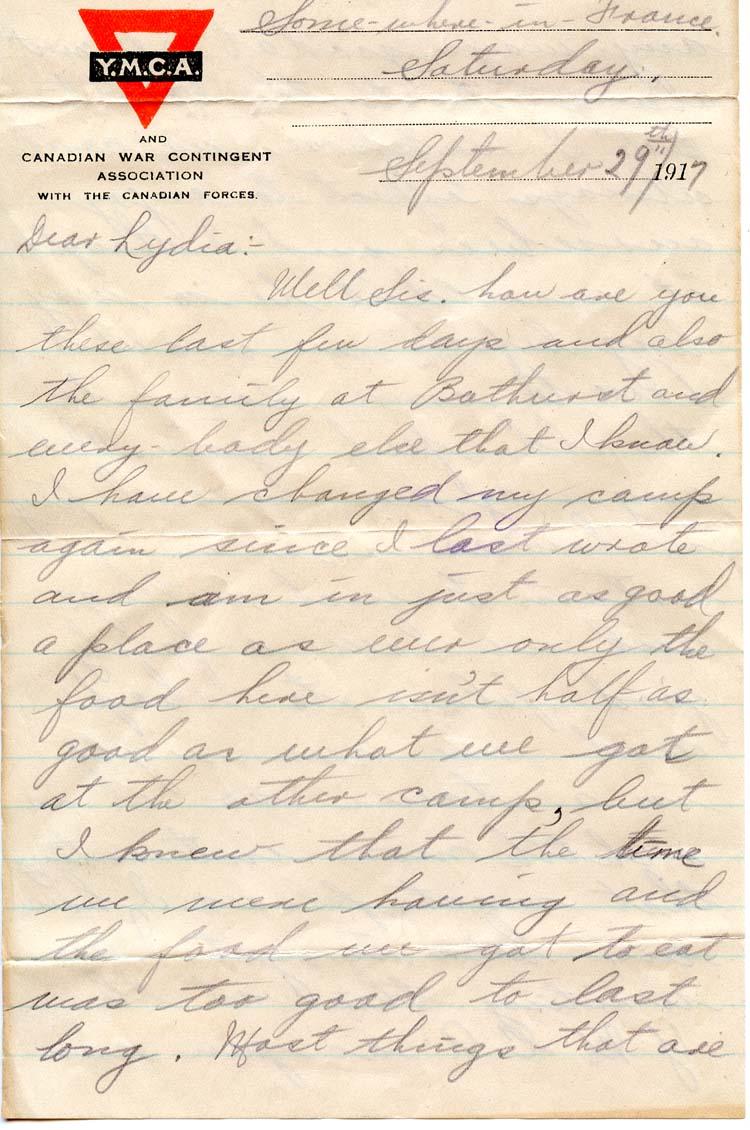 Some-where-in-France.
Y.M.C.A.
Saturday,
AND
CANADIAN WAR CONTINGENT
ASSOCIATION
WITH THE CANADIAN FORCES.
September 29th/1917
Dear Lydia:-
Well Sis. how are you
these last few days and also
the family at Bathurst and
every-body else that I know.
I have changed my camp
again since I last wrote
and am in just as good
a place as ever only the
food here isn't half as
good as what we got
at the other camp, but
I knew that the time
we were having and
the food we got to eat
was too good to last
long. Most things that are